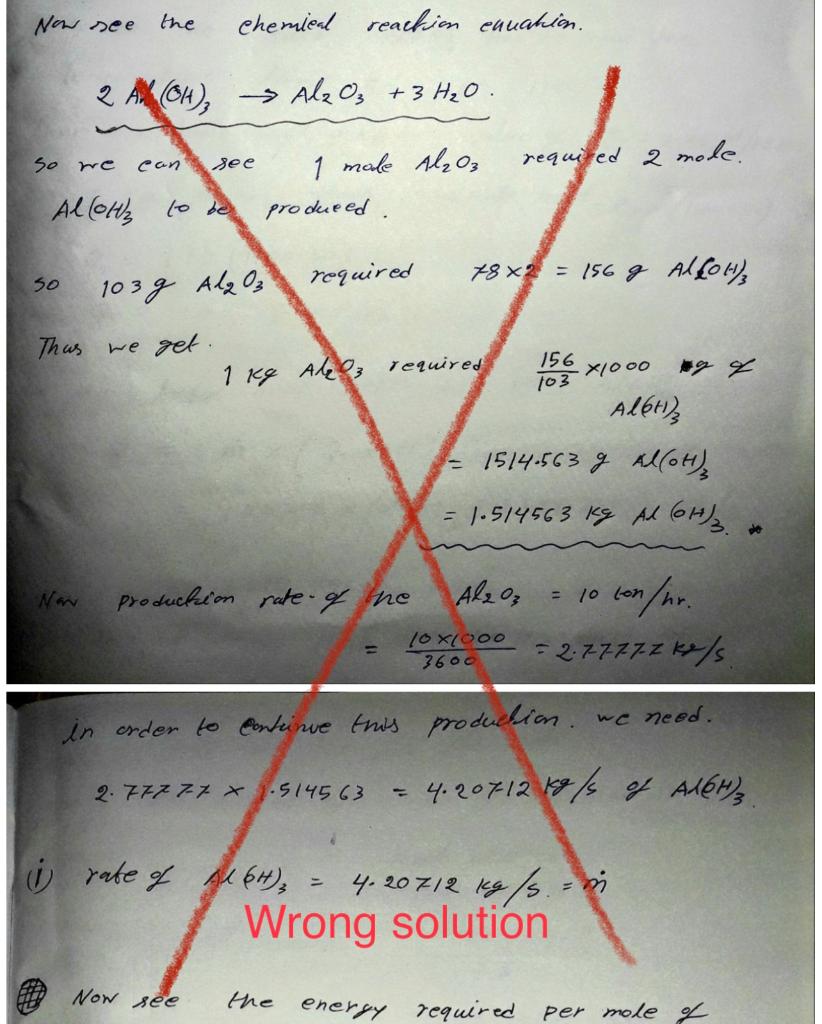 Now see the chemical reaction equation.
2 Al(OH)₃ → Al₂O₃ + 3 H₂O.
so we can see 1 mole Al₂O₃ required 2 mole.
Al(OH)₃ to be produced.
so 103 g Al₂O₃ required 78×2 = 156 g Al(OH)₃
Thus we get.
1 kg Al₂O₃ required 156/103 ×1000 g of
Al(OH)₃
= 1514.563 g Al(OH)₃
= 1.514563 kg Al(OH)₃.
Now production rate of the Al₂O₃ = 10 ton/hr.
= 10×1000/3600 = 2.77777 kg/s.
in order to continue this production. we need.
2.77777 × 1.514563 = 4.20712 kg/s of Al(OH)₃
(i) rate of Al(OH)₃ = 4.20712 kg/s. = ṁ
Wrong solution
Now see the energy required per mole of